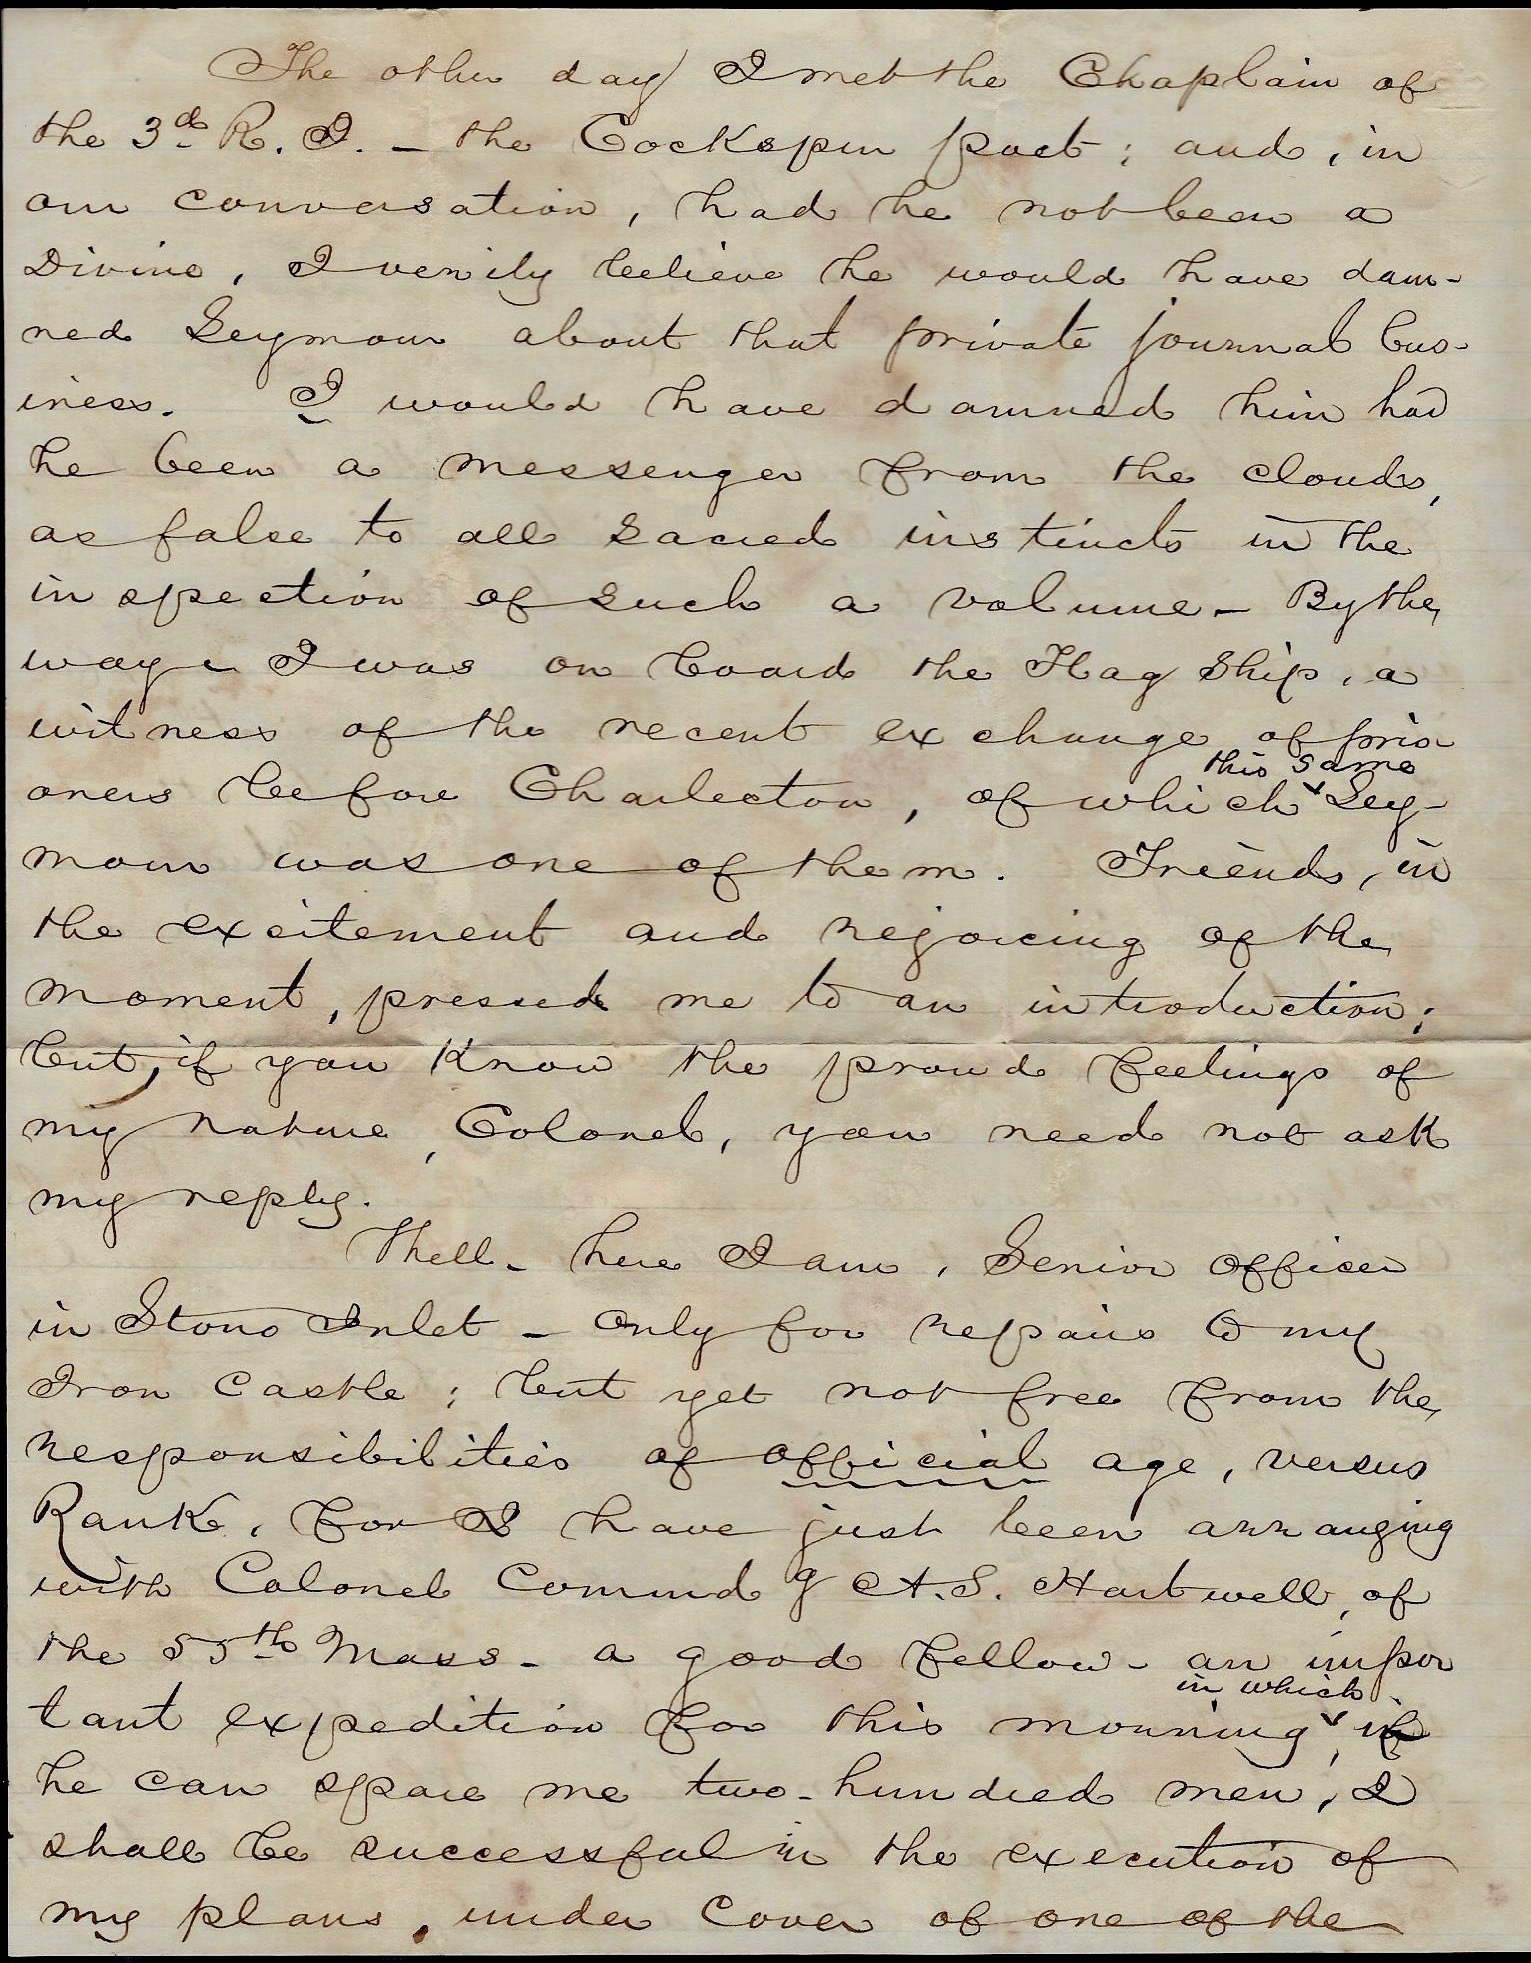 The other day I met the Chaplain of
the 3d R. I. - the Cockspur poet; and, in
our conversation, had he not been a
Divine, I verily believe he would have dam-
ned Seymour about that private journal bus-
iness. I would have damned him had
he been a messenger from the clouds,
as false to all sacred instincts in the
inspection of such a volume - By the
way - I was on board the Flag Ship, a
witness of the recent exchange of pris
this same
oners before Charleston, of which Sey-
mour was one of them. Friends, in
the excitement and rejoicing of the
moment, pressed me to an introduction;
but, if you know the proud feelings of
my nature, Colonel, you need not ask
my reply.
Well - here I am, Senior officer
in Stono Inlet - only for repairs to my
Iron Castle; but yet not free from the
responsibilities of official age, versus
Rank, for I have just been arranging
with Colonel Commdg A. S. Hartwell, of
the 55th Mass - a good fellow - an impor
in which
tant expedition for this morning, if
he can spare me two-hundred men, I
shall be successful in the execution of
my plans, under cover of one of the